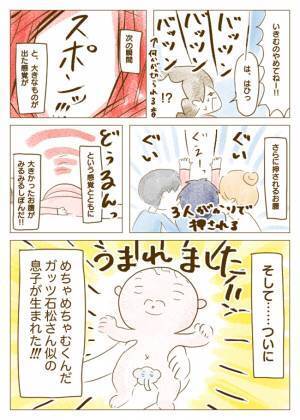 いきむのやめてねー!!
は、はひっ
バッツン
バッツン
バッツン
↑何かが切られる音
!?
次の瞬間
スポンッ!!!
と、大きなものが
出た感覚が
さらに押されるお腹
ぐい
ぐい
3人がかりで
押される
どぅるんっ
という感覚とともに
大きかったお腹が
みるみるしぼんだ!!
そして……ついに
うまれましたー!!
めちゃめちゃむくんだ
ガッツ石松さん似の
息子が生まれた!!!